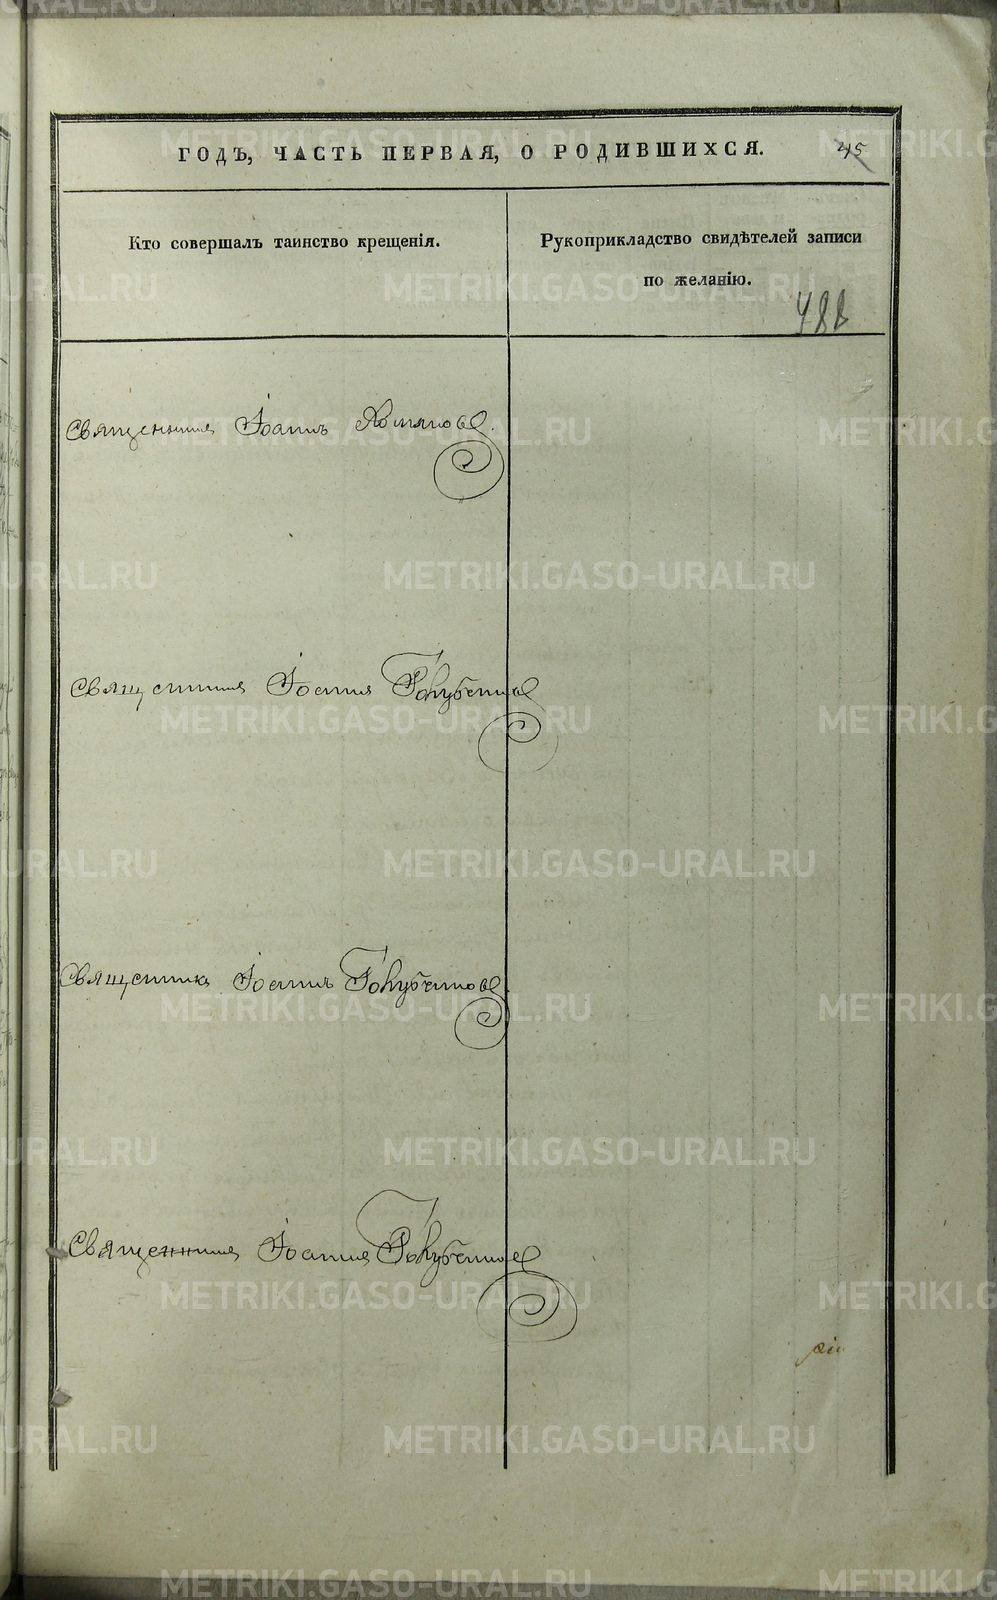 ГОДЪ, ЧАСТЬ ПЕРВАЯ, О РОДИВШИХСЯ. 45
Кто совершалъ таинство крещенія.
Рукоприкладство свидѣтелей записи
по желанію.
488
Священникъ Іоаннъ Хомяковъ.
Священникъ Іоаннъ Голубчиковъ
Священникъ Іоаннъ Голубчиковъ.
Священникъ Іоаннъ Голубчиковъ
METRIKI.GASO-URAL.RU